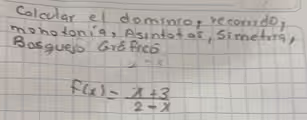 Calcular el dominio, recorrido,
monotonía, Asintotas, Simetría,
Bosquejo Gráfico
f(x) = \frac{x+3}{2-x}